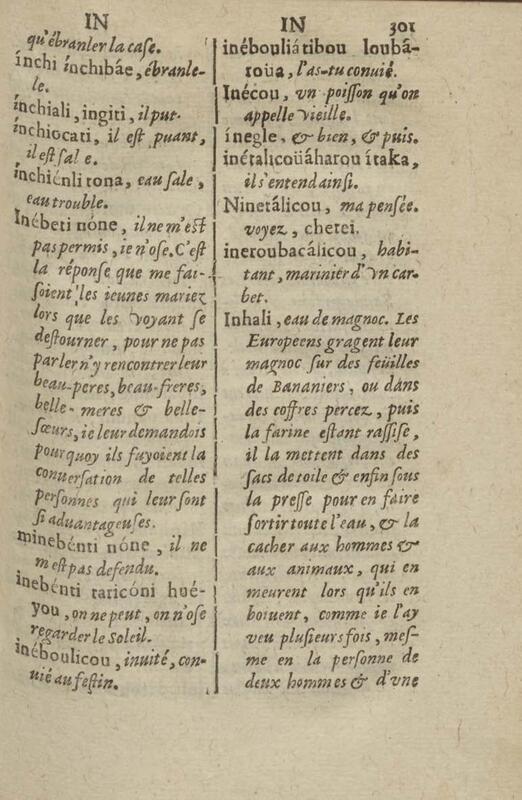 IN
qu'ébranler la case.
ínchi ínchibáe, ébranle-
le.
ínchiali, ingiti, il put.
ínchiocati, il est puant,
il est sale.
inchiénli tona, eau sale,
eau trouble.
Inébeti nóne, il ne m'est
pas permis, ie n'ose. C'est
la réponse que me fai-
soient les ieunes mariez
lors que les voyant se
destourner, pour ne pas
parler n'y rencontrer leur
beau-peres, beau-freres,
belle-meres & belle-
sœurs, ie leur demandois
pourquoy ils fuyoient la
conuersation de telles
personnes qui leur sont
si aduantageuses.
minebénti nóne, il ne
m'est pas defendu.
inebénti tariconi hué-
you, on ne peut, on n'ose
regarder le Soleil.
inéboulicou, inuité, con-
uié au festin.
IN 301
inébouliátibou loubâ-
roüa, l'as-tu conuié.
Inécou, vn poisson qu'on
appelle vieille.
ínegle, & bien, & puis.
inétalicoüáharou ítaka,
il s'entend ainsi.
Ninetálicou, ma pensée.
voyez, chetei.
ineroubacálicou, habi-
tant, marinier d'vn car-
bet.
Inhali, eau de magnoc. Les
Europeens gragent leur
magnoc sur des feüilles
de Bananiers, ou dans
des coffres percez, puis
la farine estant rassise,
il la mettent dans des
sacs de toile & enfin sous
la presse pour en faire
sortir toute l'eau, & la
cacher aux hommes &
aux animaux, qui en
meurent lors qu'ils en
boiuent, comme ie l'ay
veu plusieurs fois, mes-
me en la personne de
deux hommes & d'vne